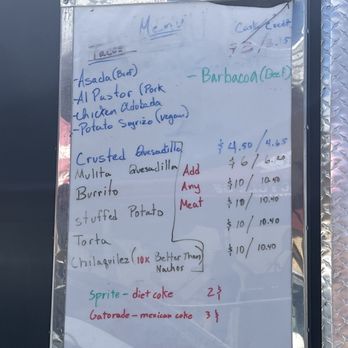 Menu
Cash / Credit
Tacos $3 / 3.15
-Asada (Beef) - Barbacoa (Beef)
-Al Pastor (Pork
-Chicken Adobada
-Potato Soyrizo (Vegan)
Crusted Quesadilla $4.50 / 4.65
Mulita Quesadilla $6 / 6.20
Burrito Add $10 / 10.40
Stuffed Potato Any $10 / 10.40
Torta Meat $10 / 10.40
Chilaquilez (10x Better Than Nachos $10 / 10.40
Sprite - diet coke 2$
Gatorade - mexican coke 3$